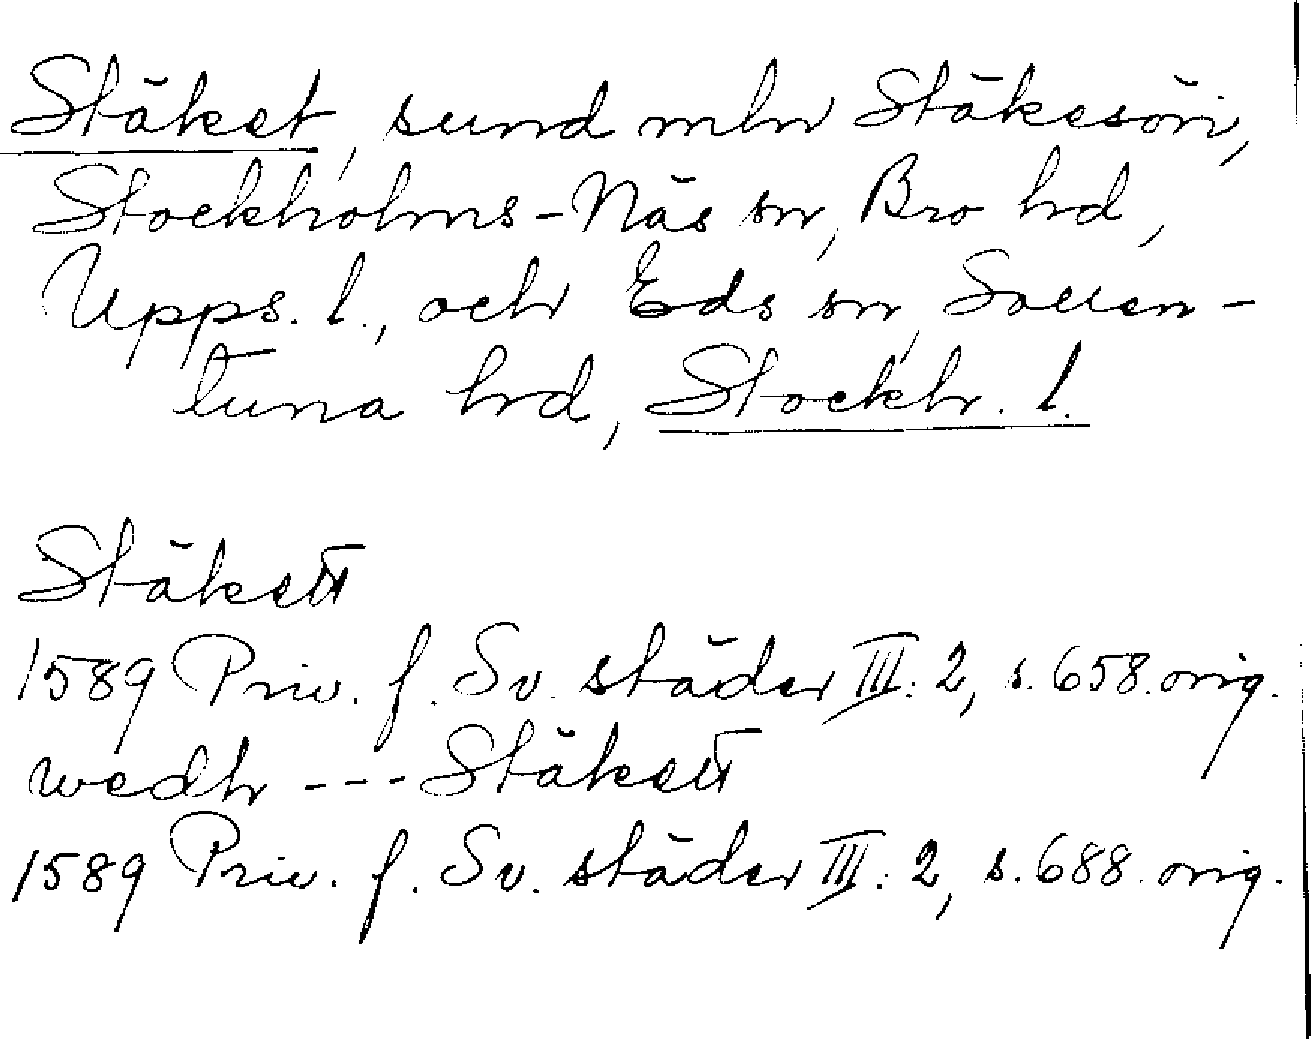 Stäket, sund mln Stäkesön,
Stockholms-Näs sn, Bro hd,
Upps. l., och Eds sn, Sollen-
tuna hd, Stockh. l.
Stäkett
1589 Priv. f. Sv. städer III: 2, s. 658. orig.
wedh --- Stäkett
1589 Priv. f. Sv. städer III: 2, s. 688. orig.